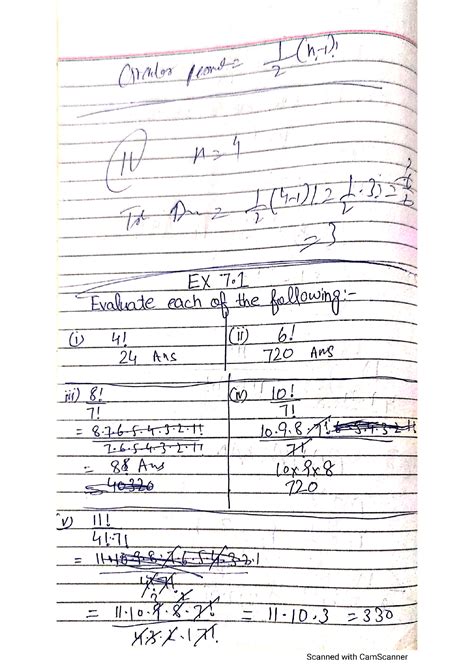 Circular permut = 1/2 (n-1)!
11 n = 4
= 1/2 (4-1)! = 1/2 . 3! =
= 3
Ex 7.1
Evaluate each of the following:-
(i) 4! (ii) 6!
24 Ans 720 Ans
iii) 8!/7! (iv) 10!/7!
= 8.7.6.5.4.3.2.1!/7.6.5.4.3.2.1! 10.9.8.7!/7!
= 88 Ans 10x9x8
40320 720
v) 11!/4!.7!
= 11.10.9.8.7.6.5.4.3.2.1/4!.7!
= 11.10.9.8.7!/4.3.2.1.7! = 11.10.3 = 330
Scanned with CamScanner